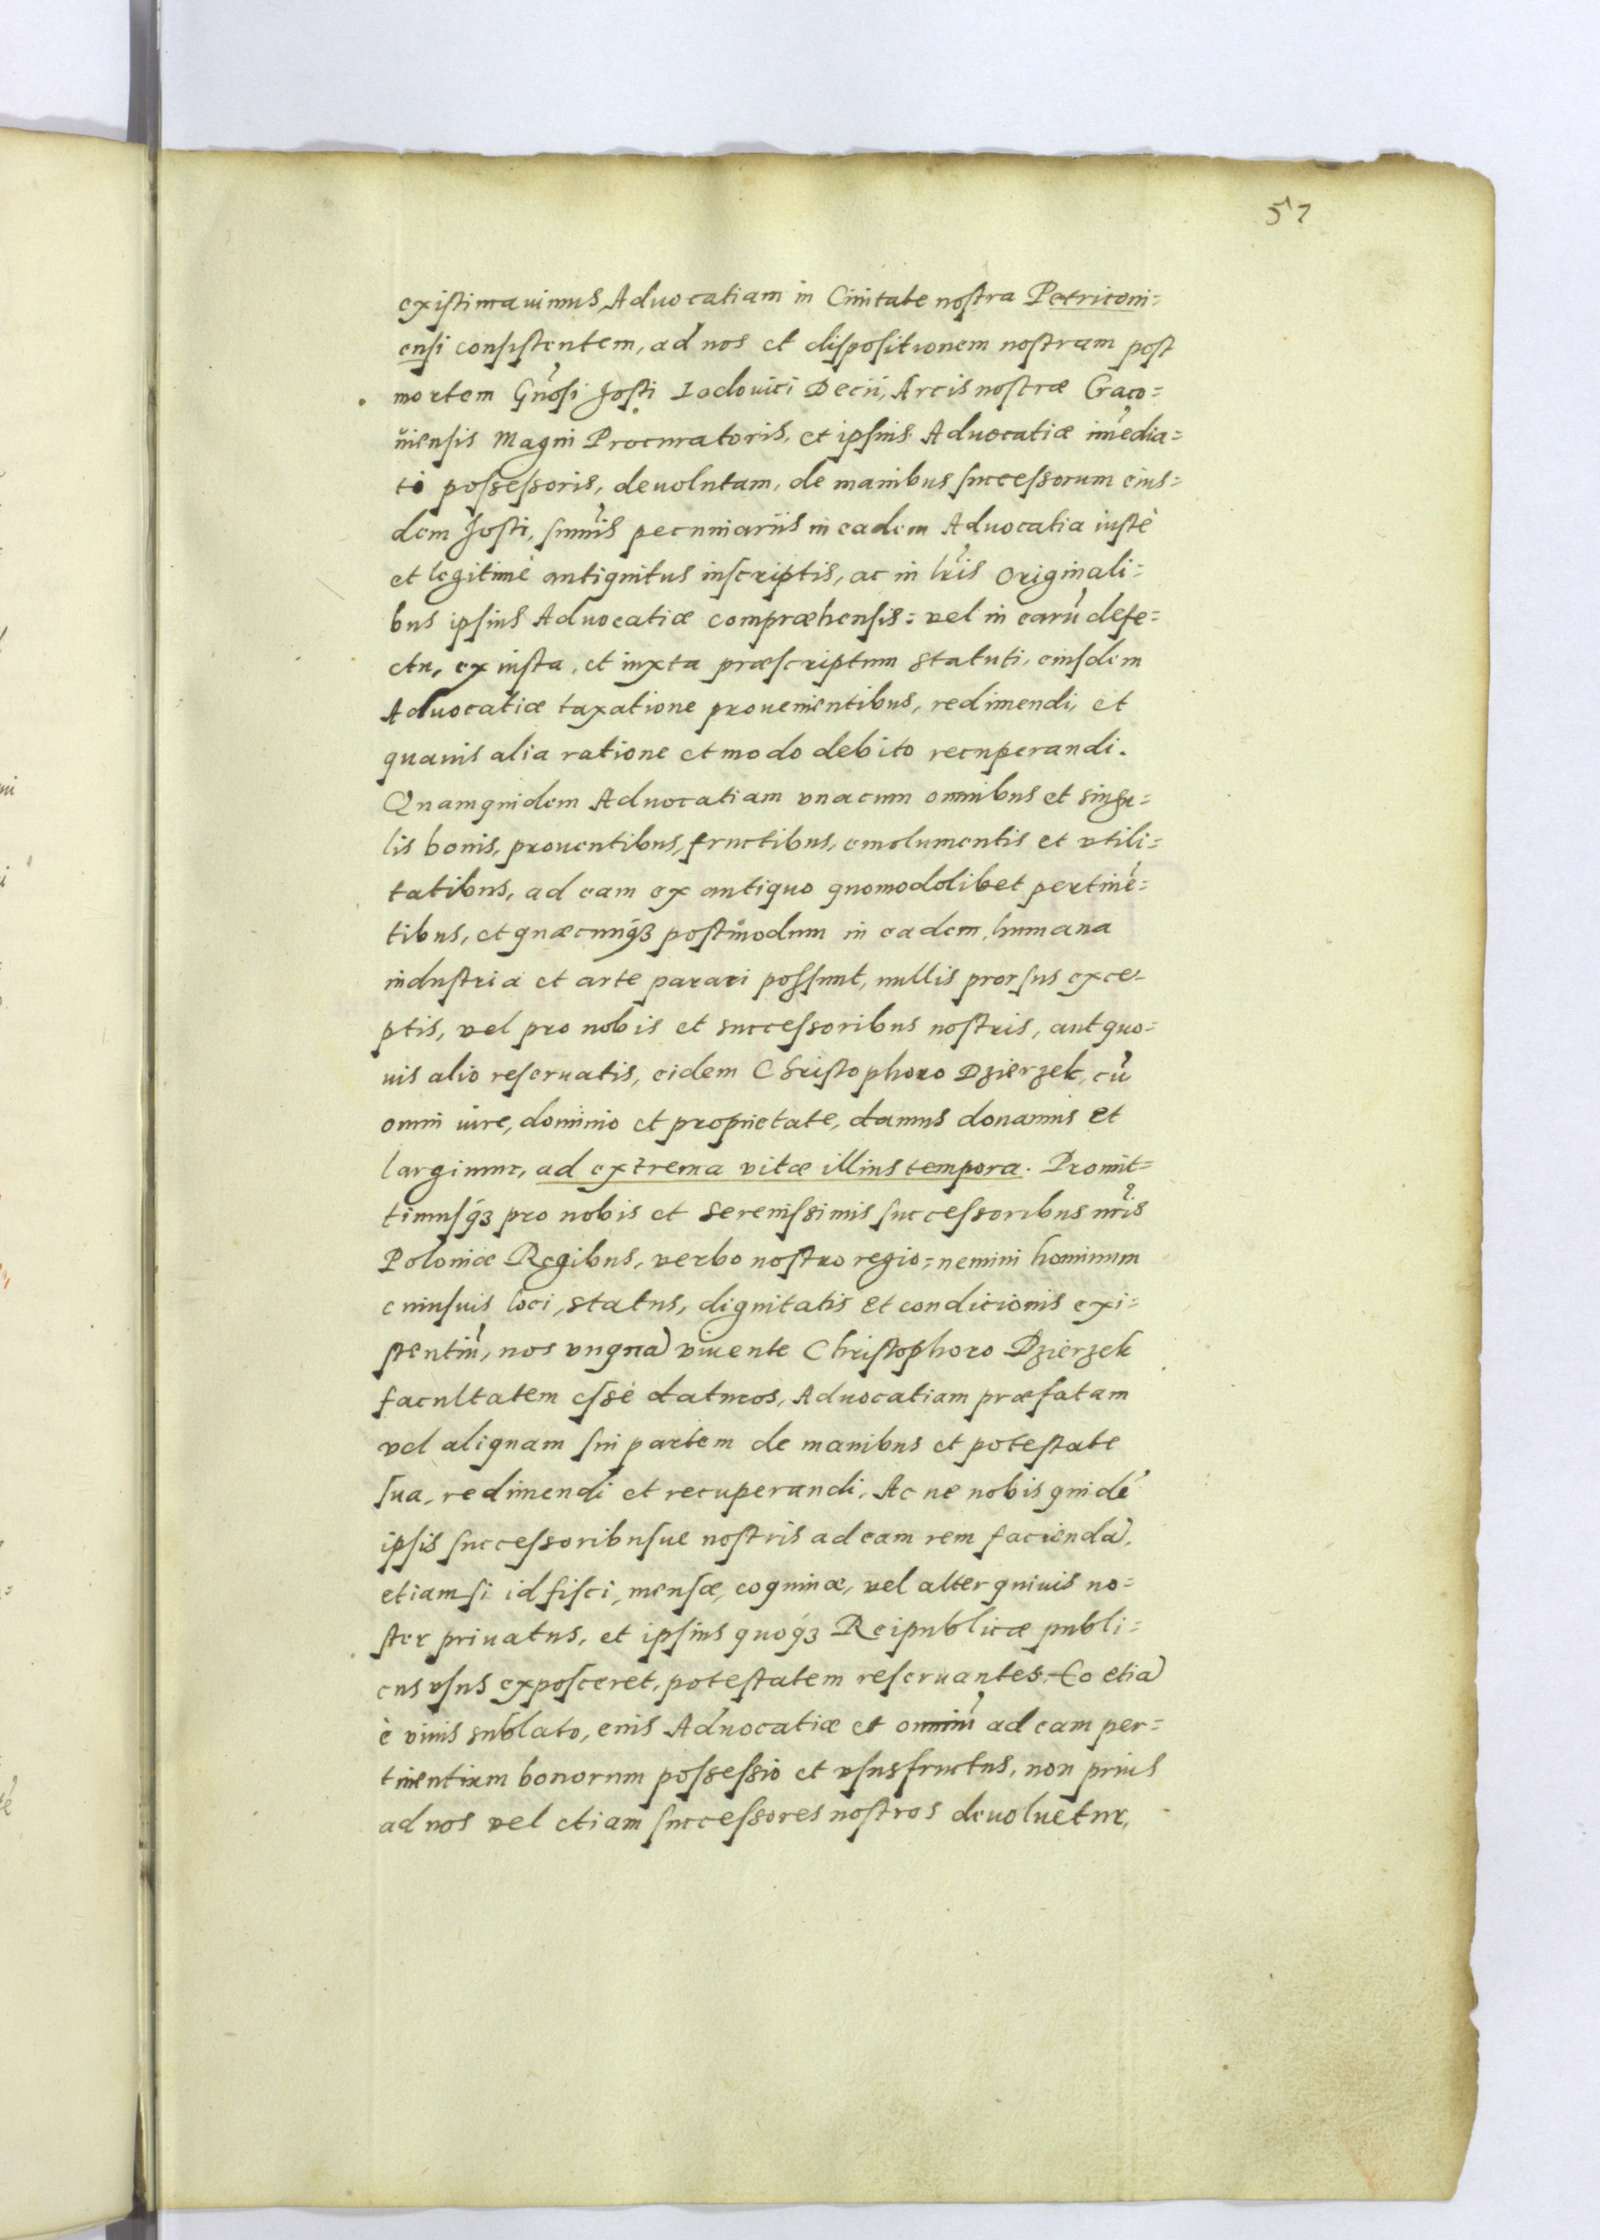 57
existimauimus, Aduocatiam in Ciuitate nostra Petriconi=
ensi consistentem, ad nos et dispositionem nostram post
mortem Gnosi Josti Lodouici Decii, Arcis nostræ Craco=
uiensis Magni Procuratoris, et ipsius Aduocatiæ imedia=
ti possessoris, deuolutam, de manibus successorum eius=
dem Josti, sumis pecuniariis in eadem Aduocatia iustè
et legitimè antiquitus inscriptis, ac in lris originali=
bus ipsius Aduocatiæ compræhensis: vel in earū defe=
ctu, ex iusta, et iuxta præscriptum statuti, eiusdem
Aduocatiæ taxatione prouenientibus, redimendi, et
quauis alia ratione et modo debito recuperandi.
Quamquidem Aduocatiam vnacum omnibus et singu=
lis bonis, prouentibus, fructibus, emolumentis et vtili=
tatibus, ad eam ex antiquo quomodolibet pertinē=
tibus, et quæcunqꝫ postmodum in eadem, humana
industria et arte parari possunt, nullis prorsus exce-
ptis, vel pro nobis et successoribus nostris, aut quo=
uis alio reseruatis, eidem Christophoro Dzierzek, cū
omni iure, dominio et proprietate, damus donamus et
largimur, ad extrema vitæ illius tempora. Promit=
timusqꝫ pro nobis et serenissimis successoribus nris
Poloniæ Regibus, verbo nostro regio: nemini hominum
cuiusuis loci, status, dignitatis et condicionis exi=
stentiū, nos vnqua viuente Christophoro Dzierzek
facultatem essè daturos, Aduocatiam præfatam
vel aliquam sui partem de manibus et potestate
sua, redimendi et recuperandi, Ac ne nobis quidē
ipsis successoribusue nostris ad eam rem facienda,
etiamsi id fisci, mensæ, coquinæ, vel alter quiuis no=
ster priuatus, et ipsius quoqꝫ Reipublicæ publi=
cus vsus exposceret, potestatem reseruantes. Eo etia
è viuis sublato, eius Aduocatiæ et omniū ad eam per=
tinentium bonorum possessio et vsusfructus, non prius
ad nos vel etiam successores nostros deuoluetur,